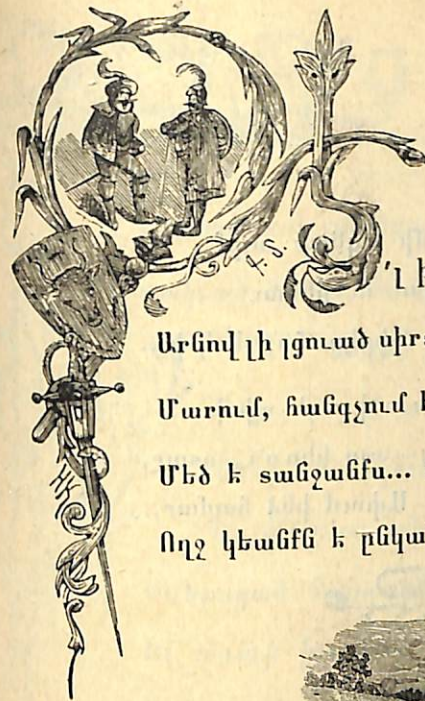 Է'լ ի
Գ. Տ.
Արնով լի լցուած սիր
Մարում, հանգչում է
Մեծ է տանջանքս...
Ողջ կեանքն է ընկա